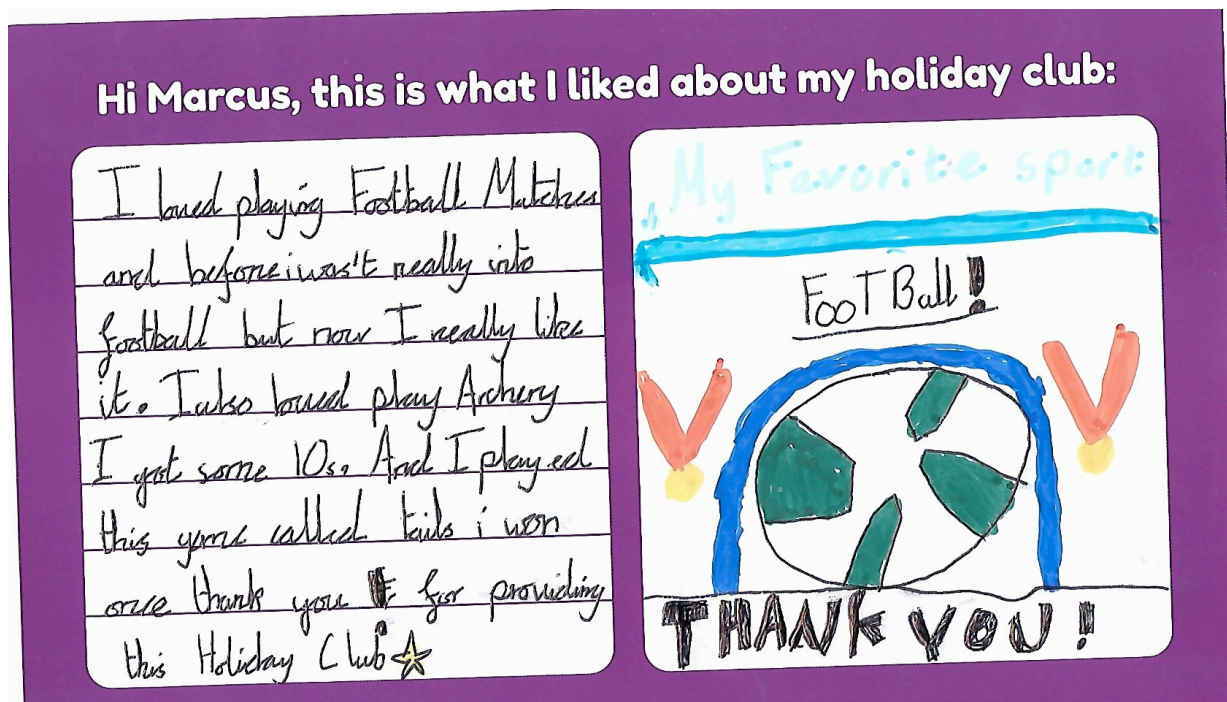 Hi Marcus, this is what I liked about my holiday club:
I loved playing Football Matches
and before i was't really into
football but now I really like
it. I also loved play Archery
I got some 10s. And I played
this game called tails i won
once thank you for providing
this Holiday Club
My Favorite sport
FooTBall!
THANK YOU!